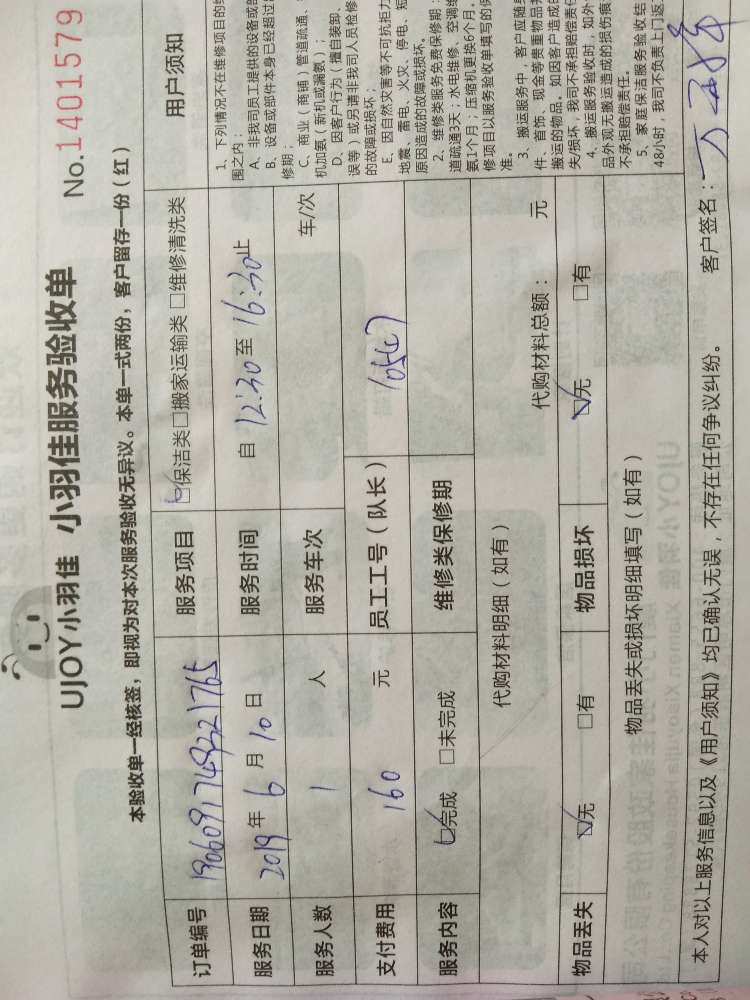 UJOY小羽佳 小羽佳服务验收单
No.1401579
本验收单一经核签，即视为对本次服务验收无异议。本单一式两份，客户留存一份（红）
订单编号 19060917492221765 服务项目 ☑保洁类□搬家运输类□维修清洗类
服务日期 2019年6月10日 服务时间 自12:30至16:30止
服务人数 1人 服务车次 车/次
支付费用 160元 员工工号（队长） 10547
服务内容 ☑完成 □未完成 维修类保修期
代购材料明细（如有） 代购材料总额： 元
物品丢失 ☑无 □有 物品损坏 ☑无 □有
物品丢失或损坏明细填写（如有）
用户须知
1、下列情况不在维修项目的
围之内：
A、非我司员工提供的设备或
B、设备或部件本身已经超过
修期；
C、商业（商铺）管道疏通、
机加氨（新机或漏氨）；
D、因客户行为（擅自装卸、
误等）或另请非我司人员检修
的故障或损坏；
E、因自然灾害等不可抗拒力
地震、雷电、火灾、停电、
原因造成的故障或损坏。
2、维修类服务免费保修期：
道疏通3天；水电维修、空调
氨1个月；压缩机更换6个月。
修项目以服务验收单填写的
准。
3、搬运服务中，客户应随
件、首饰、现金等贵重物品
搬运的物品，如因客户造成
失/损坏，我司不承担赔偿责
4、搬运服务验收时，如外
品外观无搬运造成的损伤痕
不承担赔偿责任。
5、家庭保洁服务验收
48小时，我司不负责上门返
本人对以上服务信息以及《用户须知》均已确认无误，不存在任何争议纠纷。 客户签名：